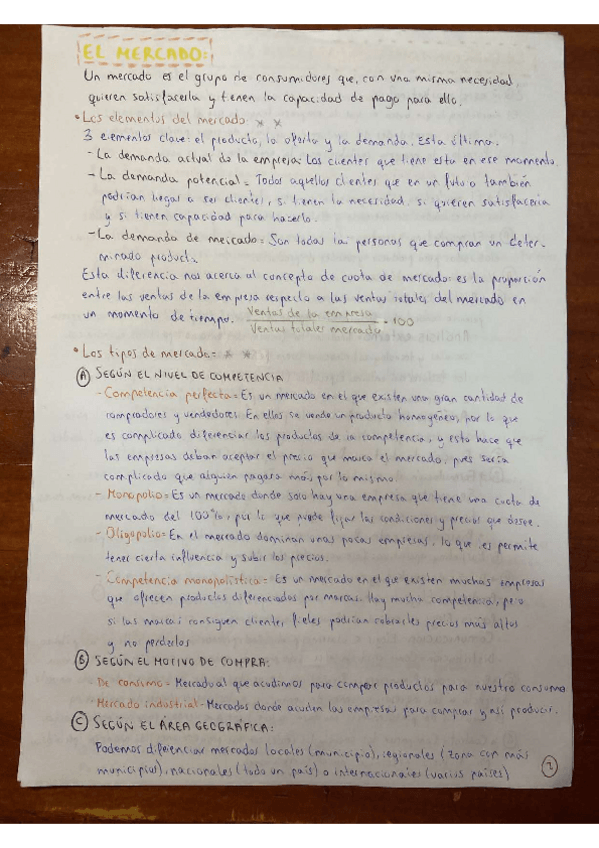 EL MERCADO:
Un mercado es el grupo de consumidores que, con una misma necesidad,
quieren satisfacerla y tienen la capacidad de pago para ello.
• Los elementos del mercado: x x
3 elementos clave: el producto, la oferta y la demanda. Esta última.
- La demanda actual de la empresa: Los clientes que tiene esta en ese momento.
- La demanda potencial = Todos aquellos clientes que en un futuro también
podrían llegar a ser clientes, si tienen la necesidad, si quieren satisfacerla
y si tienen capacidad para hacerlo.
- La demanda de mercado = Son todas las personas que compran un deter-
minado producto.
Esta diferencia nos acerca al concepto de cuota de mercado: es la proporción
entre las ventas de la empresa respecto a las ventas totales del mercado en
un momento de tiempo. Ventas de la empresa
Ventas totales mercado · 100
• Los tipos de mercado = x x
A SEGÚN EL NIVEL DE COMPETENCIA
- Competencia perfecta = Es un mercado en el que existen una gran cantidad de
compradores y vendedores. En ellos se vende un producto homogéneo, por lo que
es complicado diferenciar los productos de la competencia, y esto hace que
las empresas deban aceptar el precio que marca el mercado, pues sería
complicado que alguien pagara más por lo mismo
- Monopolio = Es un mercado donde solo hay una empresa que tiene una cuota de
mercado del 100%, por lo que puede fijar las condiciones y precios que desee.
- Oligopolio = En el mercado dominan unas pocas empresas, lo que les permite
tener cierta influencia y subir los precios.
- Competencia monopolística = Es un mercado en el que existen muchas empresas
que ofrecen productos diferenciados por marcas. Hay mucha competencia, pero
si las marcas consiguen clientes fieles podrían cobrarles precios más altos
y no perderlos
B SEGÚN EL MOTIVO DE COMPRA:
De consumo = Mercado al que acudimos para comprar productos para nuestro consumo
Mercado industrial - Mercados donde acuden las empresas para comprar y así producir.
C SEGÚN EL ÁREA GEOGRÁFICA:
Podemos diferenciar mercados locales (municipio), regionales (zona con más
municipios), nacionales (todo un país) o internacionales (varios países)
2